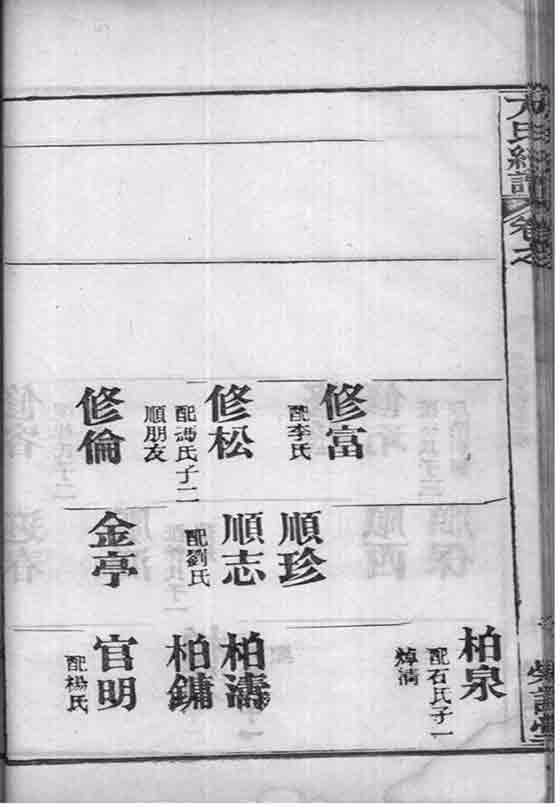 卷之
修富
配李氏
修松
配馮氏子二
順朋友
修倫
順珍
順志
配劉氏
金亭
柏泉
配石氏子一
焯清
柏濤
柏鏞
官明
配楊氏